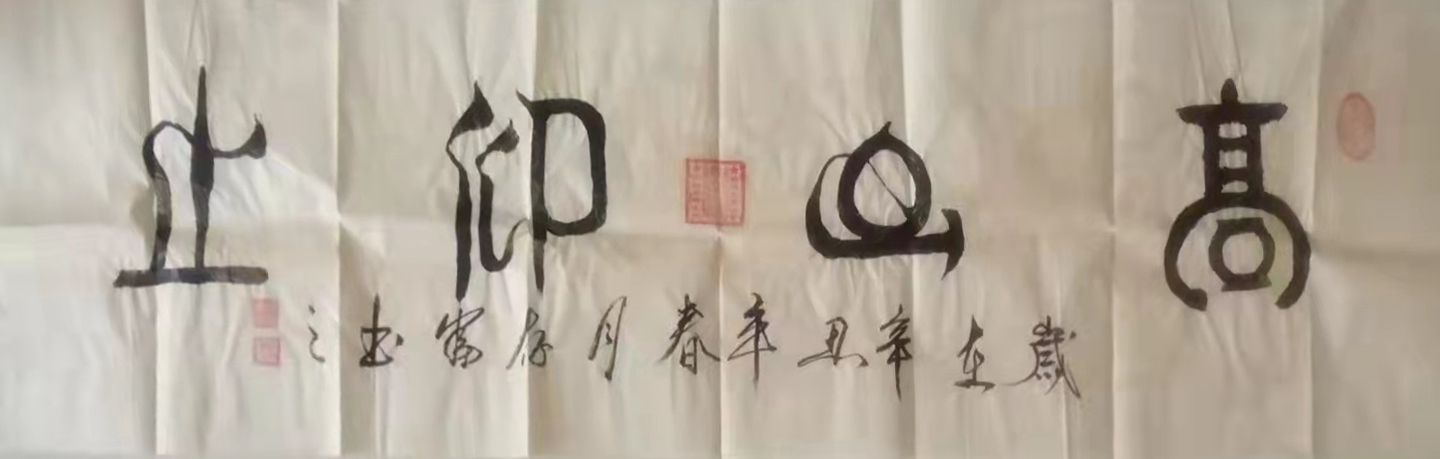 高山仰止
歲在辛丑年春月存富书之